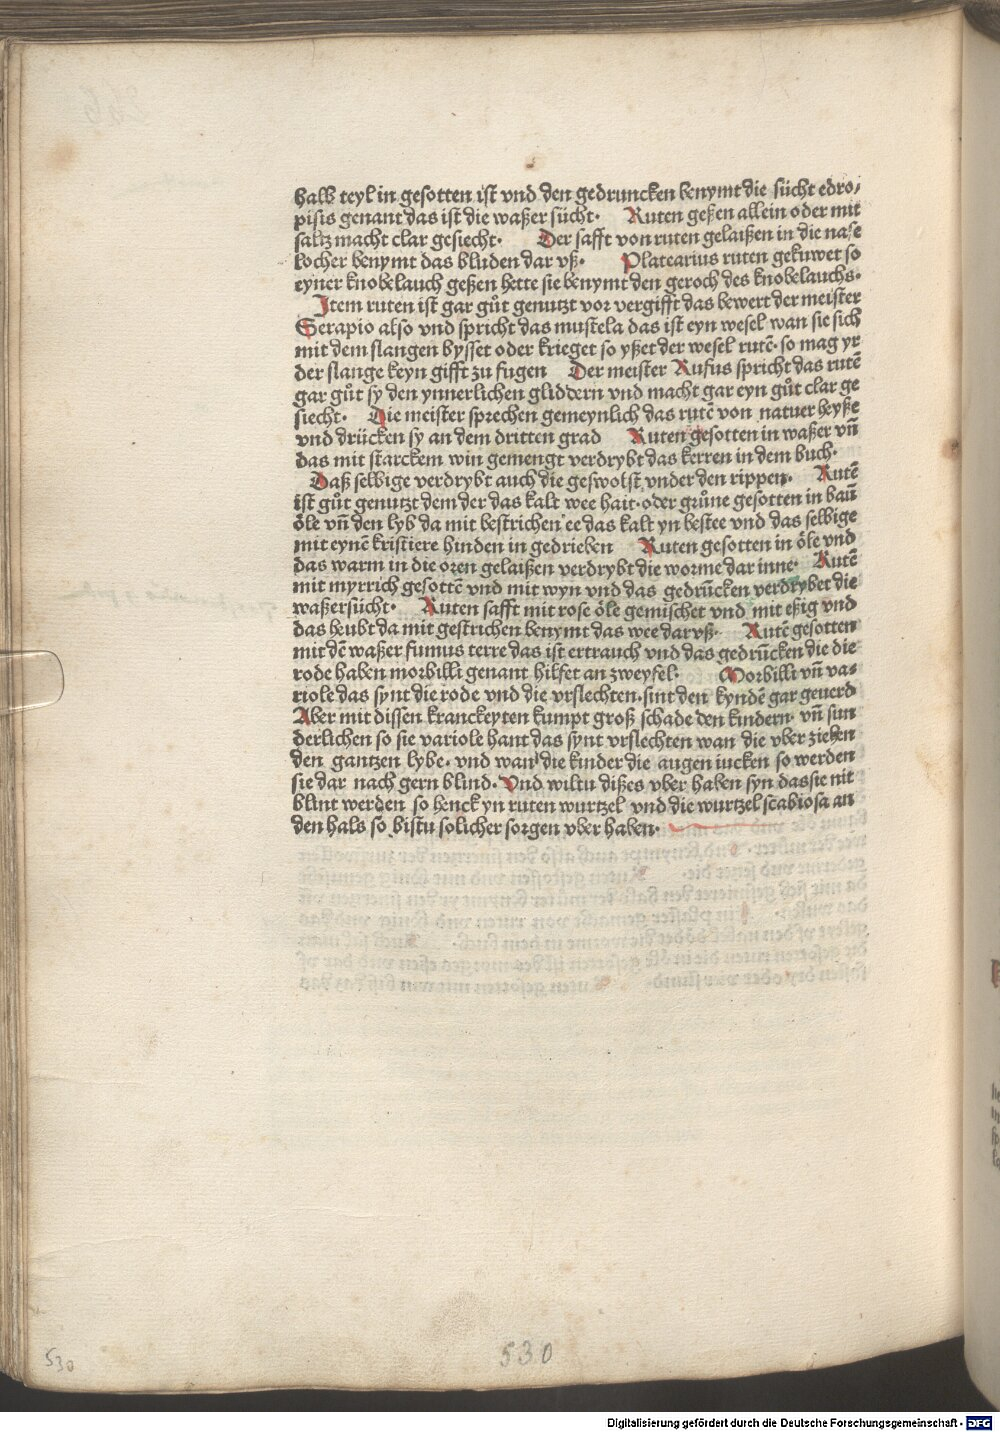 halb teyl in gesotten ist vnd den gedruncken benymt die sücht edro/
pisis genant das ist die waßer sücht· Ruten geßen allein oder mit
saltz macht clar gesiecht· Der safft von ruten gelaißen in die nase
locher benymt das bluden dar vß· Platearius ruten gekuwet so
eyner knobelauch geßen hette sie benymt den geroch des knobelauchs·
Jtem ruten ist gar gůt genutzt vor vergifft das bewert der meister
Serapio also vnd spricht das mustela das ist eyn wesel wan sie sich
mit dem slangen bysset oder krieget so yßet der wesel rutē· so mag yr
der slange keyn gifft zu fugen Der meister Rufus spricht das rutē
gar gůt sy den ynnerlichen gliddern vnd macht gar eyn gůt clar ge
siecht· Die meister sprechen gemeynlich das rutē von natuer heyße
vnd drücken sy an dem dritten grad Ruten gesotten in waßer vñ
das mit starckem win gemengt verdrybt das kerren in dem buch·
Daß selbige verdrybt auch die geswolst vnder den rippen· Rutē
ist gůt genutzt dem der das kalt wee hait· oder grůne gesotten in bau̅
öle vñ den lyb da mit bestrichen ee das kalt yn bestee vnd das selbige
mit eynē kristiere hinden in gedrieben Ruten gesotten in öle vnd
das warm in die oren gelaißen verdrybt die worme dar inne· Rutē
mit myrrich gesottē vnd mit wyn vnd das gedrūcken verdrybet die
waßersücht· Ruten safft mit rose öle gemischet vnd mit eßig vnd
das heubt da mit gestrichen benymt das wee dar vß· Rutē gesotten
mit dē waßer fumus terre das ist ertrauch vnd das gedrūcken die die
rode haben morbilli genant hilfet an zweyfel· Morbilli vñ va-
riole das synt die rode vnd die vrslechten· sint den kyndē gar geuerd
Aber mit dissen kranckeyten kumpt groß schade den kindern· vñ sun
derlichen so sie variole hant das synt vrslechten wan die vber ziehen
den gantzen lybe· vnd wan die kinder die augen iucken so werden
sie dar nach gern blind· Vnd wiltu dißes vber haben syn das sie nit
blint werden so henck yn ruten wurtzel vnd die wurtzel scabiosa an
den hals so bistu solicher sorgen vber haben·
530
530
Digitalisierung gefördert durch die Deutsche Forschungsgemeinschaft - DFG